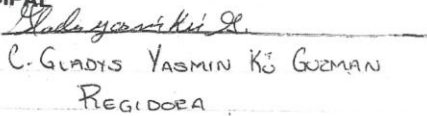 Gladys Yasmin Kú G.
C. GLADYS YASMIN KÚ GUZMAN
REGIDORA